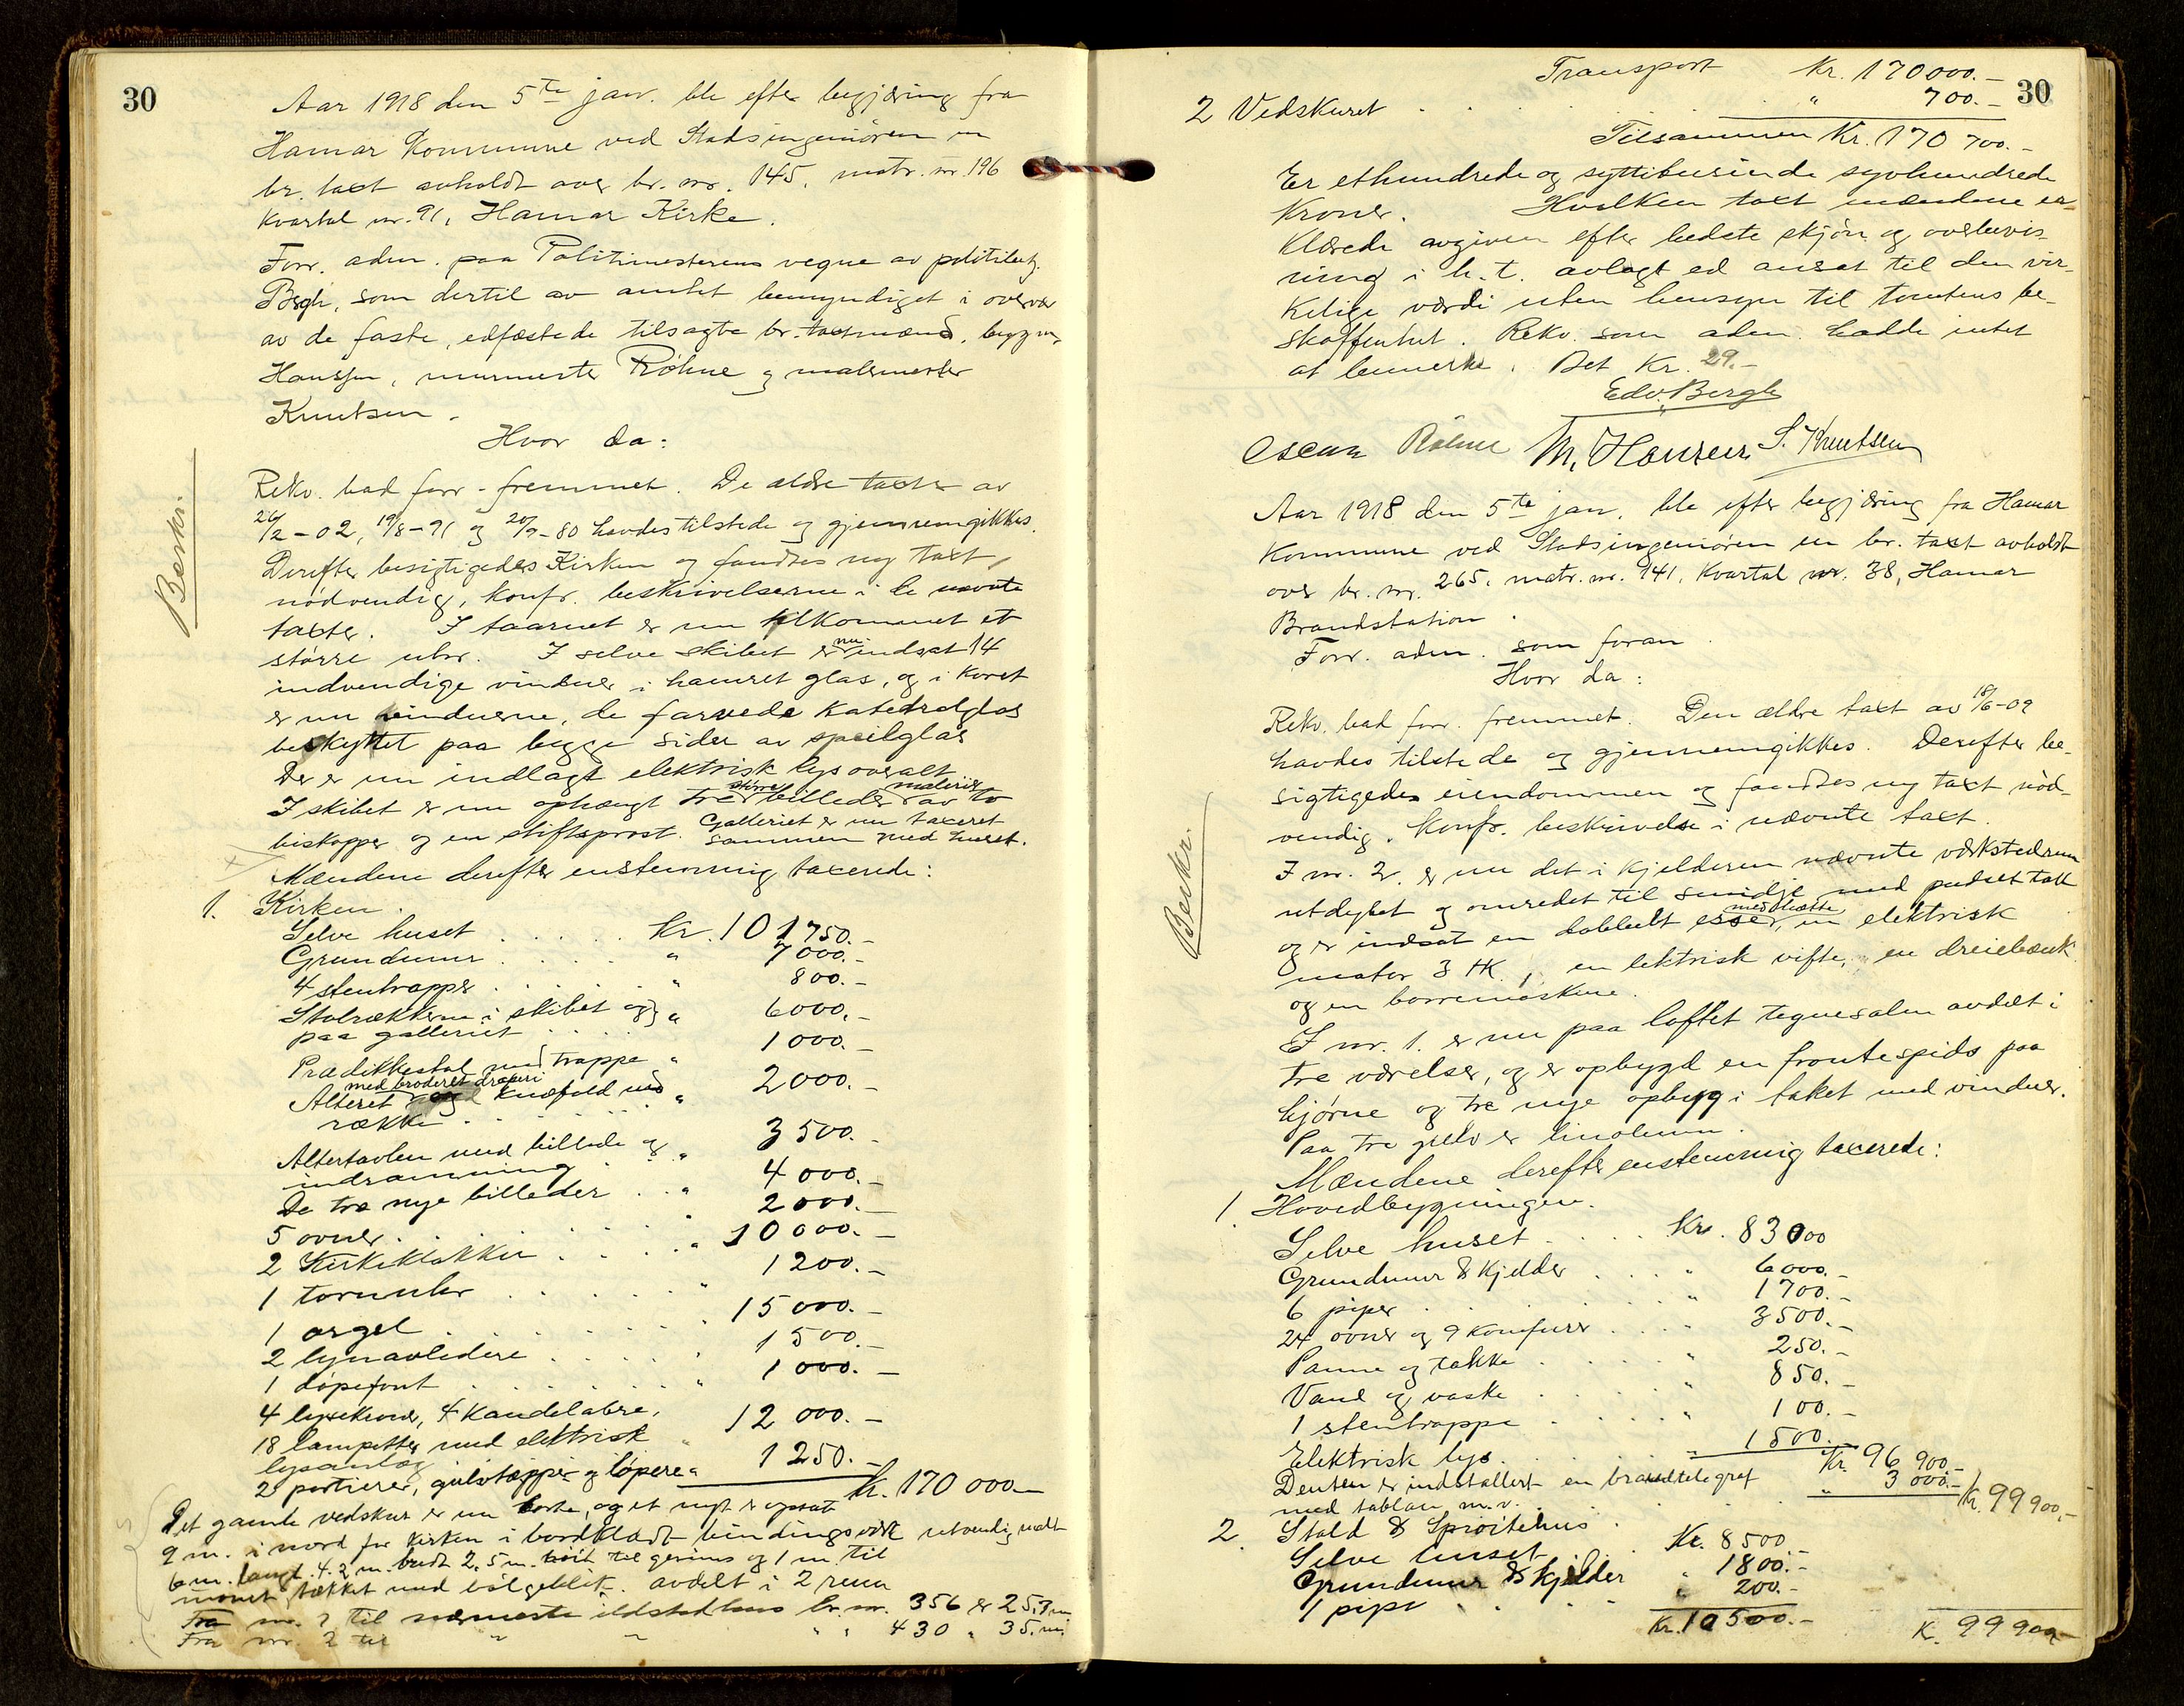 30
Aar 1918 den 5te jan. ble efter begjæring fra
Hamar Kommune ved Stadsingeniøren en
br. taxt avholdt over br. nr. 145, matr. nr. 196
kvartal nr. 91, Hamar Kirke.
Forr. adm. paa Politimesterens vegne av politibetj.
Bergh, som dertil av amtet bemyndiget i overvær
av de faste, edfæstede tilsagte br. taxtmænd, bygm.
Hanssen, murmester Röhne og malermester
Knutsen.
Hvor da:
Beskr.
Rekv. bad forr. fremmet. De ældre taxter av
26/2-02, 19/8-91 og 20/9-80 havdes tilstede og gjennemgikkes.
Derefter besigtigedes Kirken og fandtes ny taxt
nödvendig, konfr. beskrivelserne i de nævnte
taxter. I taarnet er nu tilkommet et
större uhr. I selve skibet er nu indsat 14
indvendige vinduer i hamret glas, og i koret
er nu vinduerne, de farvede katedralglas
beskyttet paa begge sider av speilglas
Der er nu indlagt elektrisk lys overalt
I skibet er nu ophængt tre större billeder malerier av to
biskopper og en stiftsprost. Galleriet er nu taxeret
sammen med huset.
Mændene derefter enstemmig taxerede:
1. Kirken.
Selve huset . . . . . Kr. 101750.-
Grundmur . . . . . " 7000.-
4 stentrapper . . . . . " 800.-
Stolrækkerne i skibet og } " 6000.-
paa galleriet . . . .
Prædikkestol med trappe " 1000.-
Alteret med broderet draperi og knæfald med " 2000.-
række . . . . . .
Altertavlen med billede og " 3500.-
indramning . . .
De tre nye billeder . . " 4000.-
5 ovner . . . . . . " 2000.-
2 Kirkeklokker . . . . " 10000.-
1 tornuhr . . . . . " 1200.-
1 orgel . . . . . . " 15000.-
2 lynavledere . . . . " 1500.-
1 döpefont . . . . . " 1000.-
4 lysekroner, 4 Kandelabre,
18 lampetter med elektrisk " 12000.-
lysanlæg
2 portierer, gulvtæpper og löpere " 1250.-
Kr. 170 000.-
Det gamle vedskur er nu borte, og et nyt er opsat
9 m. i nord for kirken i bordklædt bindingsverk utvendig malt
6 m. langt 4.2 m. bredt 2,5 m. höit til gesims og 1 m. til
mønet tækket med bölgeblik. avdelt i 2 rum
Fra nr. 2 til nærmeste ildstedhus br. nr. 356 er 25,7 m.
Fra nr. 2 til " " " " 430 " 35, m.
30
Transport Kr. 170000.-
2 Vedskuret . . . . . . " 700.-
Tilsammen Kr. 170 700.-
Er ethundrede og syttitusinde syvhundrede
Kroner. Hvilken taxt mændene er-
klærede avgiven efter bedste skjön og overbevis-
ning i h. t. avlagt ed ansat til den vir-
kelige værdi uten hensyn til tomtens be-
skaffenhet. Rekv. som adm. hadde intet
at bemerke. Bet Kr. 29.-
Edv. Bergh
Oscar Röhne M. Hansen S. Knutsen
Aar 1918 den 5te jan. ble efter begjæring fra Hamar
Kommune ved Stadsingeniøren en br. taxt avholdt
over br. nr. 265, matr. nr. 141, Kvartal nr. 38, Hamar
Brandstation.
Forr. adm. som foran.
Hvor da:
Beskr.
Rekv. bad forr. fremmet. Den ældre taxt av 18/6-09
havdes tilstede og gjennemgikkes. Derefter be-
sigtigedes eiendommen og fandtes ny taxt nöd-
vendig. Konfr. beskrivelse i nævnte taxt.
I nr. 2. er nu det i kjelderen nævnte verkstedrum
utdybet og omredet til smidje med pudset tak
og er indsat en dobbelt esse med hætte, en elektrisk
motor 3 HK., en lektrisk vifte, en dreiebænk
og en borremaskine.
I nr. 1. er nu paa loftet tegnesalen avdelt i
tre værelser, og er opbygd en frontespids paa
hjörne og tre nye opbyg i taket med vinduer.
Paa tre gulv er linoleum.
Mændene derefter enstemmig taxerede:
1. Hovedbygningen.
Selve huset . . . . Kr. 83000
Grundmur & Kjelder . . . " 6000.-
6 piper . . . . . . " 1700.-
24 ovner og 9 komfurer . . . " 3500.-
Panne og takke . . . . " 250.-
Vand og vaske . . . . " 850.-
1 stentrappe . . . . " 100.-
Elektrisk lys . . . . " 1500.-
Kr. 96 900.-
Desuten er indstallert en brandtelegraf
med tablau m. v. . . . . " 3000.-
Kr. 99900.-
2. Stald & Spröitehus .
Selve huset . . Kr. 8500.-
Grundmur & Kjelder " 1800.-
1 pipe . . . " 200.-
Kr. 10500.- K. 99900.-